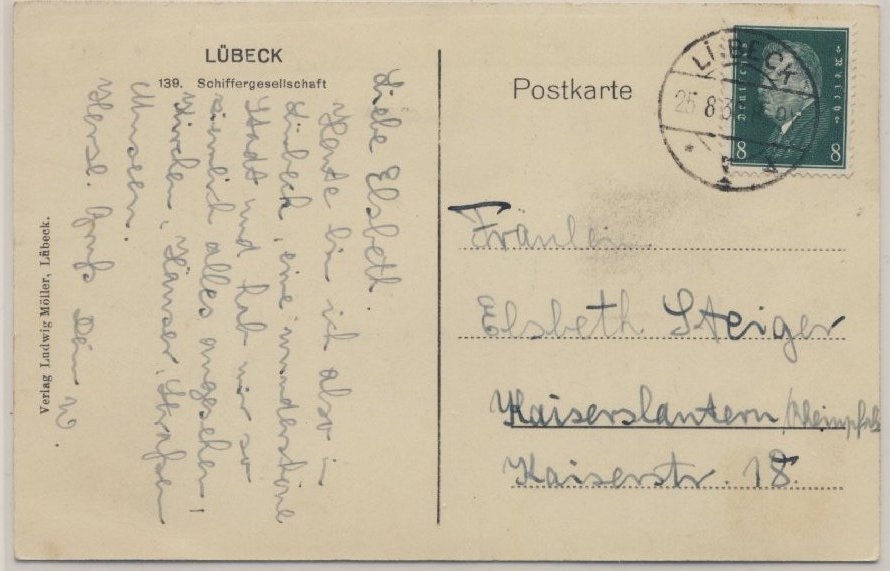 LÜBECK
139. Schiffergesellschaft
Liebe Elsbeth.
Heute bin ich also in
Lübeck, eine wunderschöne
Stadt und hab mir so
ziemlich alles angesehen,
Kirchen, Häuser, Straßen
Museen.
Herzl. Gruß Dein W.
Verlag Ludwig Möller, Lübeck.
Postkarte
LÜBECK
25.8.3
Deutsches Reich
8 8
Fräulein
Elsbeth Steiger
Kaiserslautern /Rheinpfalz
Kaiserstr. 18.